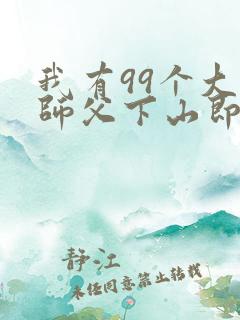 我有99个大
师父下山即
静江
未经同意禁止转载